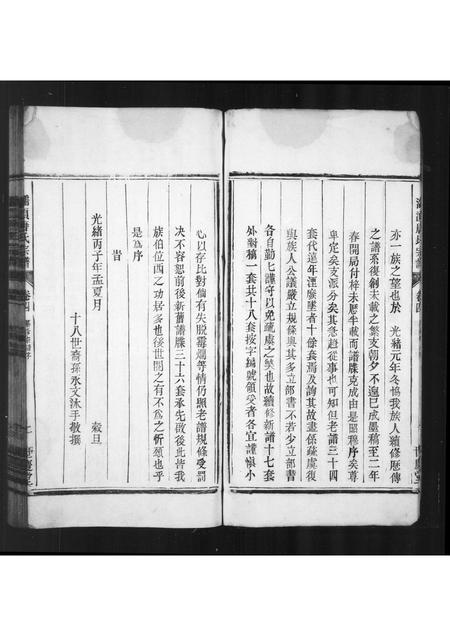 亦一族之望也於 光緒元年冬協我族人續修歷傳
之譜系復創未載之繁支朝夕不遑已成墨稿至二年
春開局付梓未曆半載而譜牒克成由是昭穆序矣尊
卑定矣支派分矣其急趨從事也可知但老譜三十四
套代遠年湮廢墜者十餘套焉及詢其故盡係疏虞復
與族人公議嚴立規條與其多立部書不若少立部書
各自勤七謹守以免疏虞之弊也故續修新譜十七套
外對稿一套共十八套按字編號領受者各宜謹愼小
心以存比對倘有失脫霉爛等情仍照老譜規條受罰
决不容恕前後新舊譜牒三十六套承先啟後此皆我
族伯位西之功居多也後世聞之有不爲之忻頌也乎
是爲序
旹
光緒丙子年孟夏月 穀旦
十八世裔孫永文沐手敬撰
卷四
世慶堂